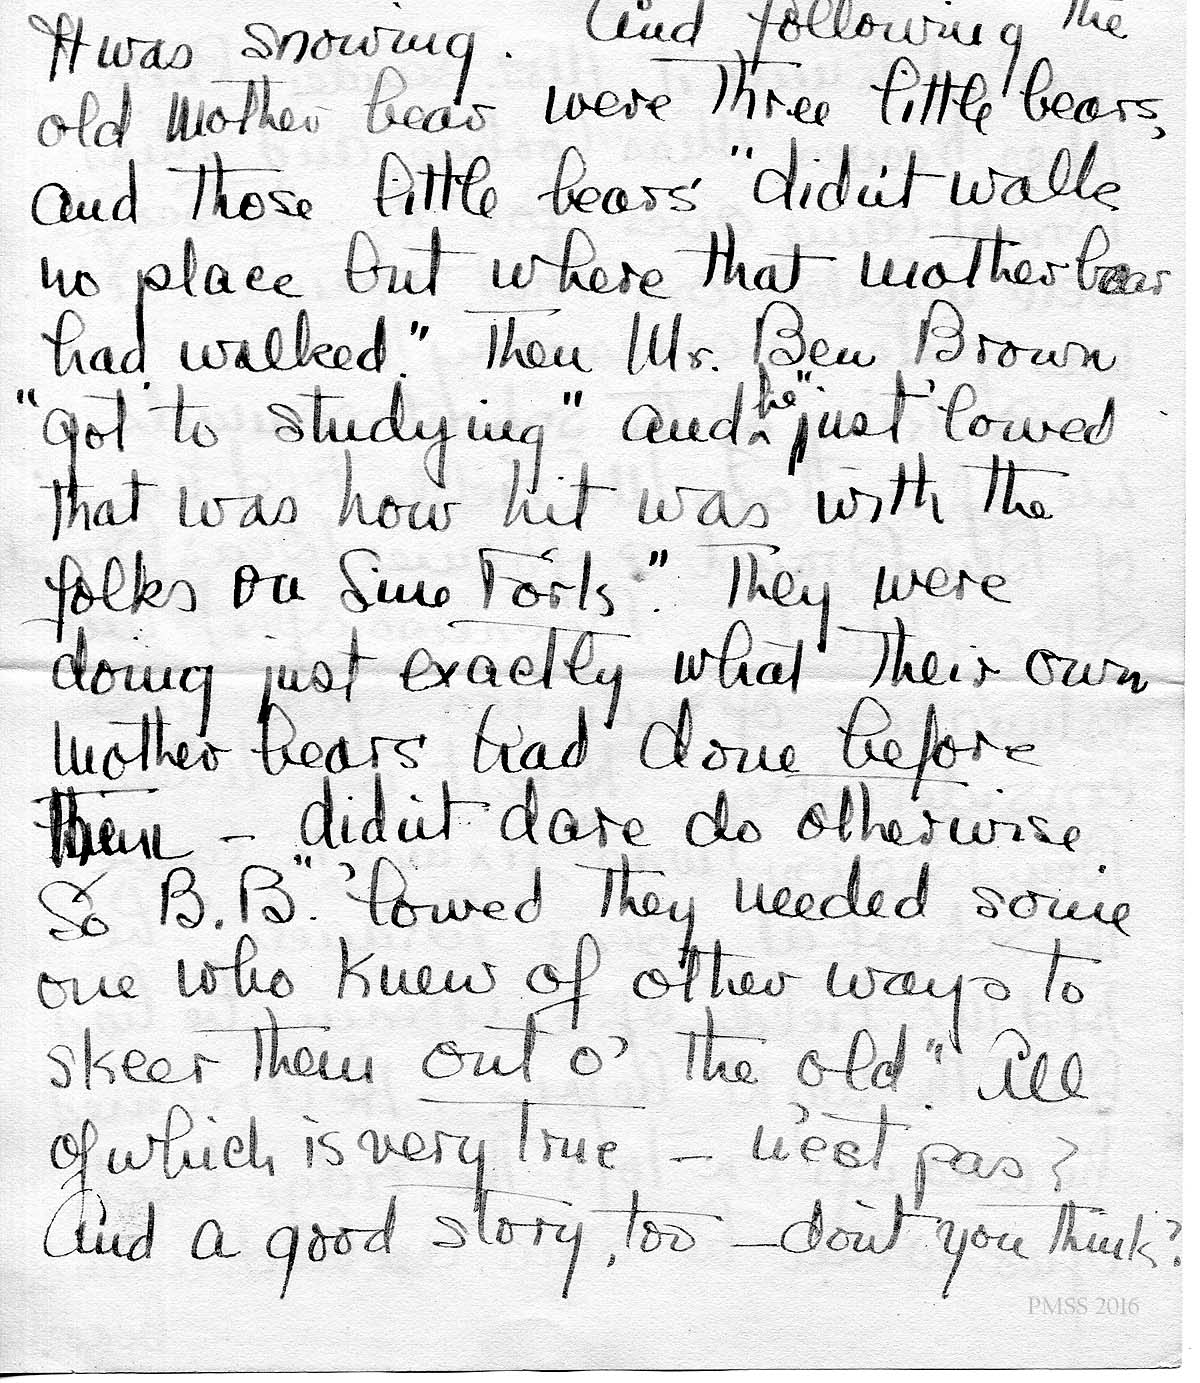 It was snowing. And following the
old mother bear were three little bears,
and those little bears "didn't walk
no place but where that mother bear
had walked." Then Mr. Ben Brown
"got to studying" and he "just 'lowed
that was how hit was with the
folks on Line Fork". They were
doing just exactly what their own
mother bears had done before
them – didn't dare do otherwise.
So B.B. "'lowed they needed some
one who knew of other ways to
skeer them out o' the old." All
of which is very true – n'est pas?
And a good story, too – don't you think?
PMSS 2016